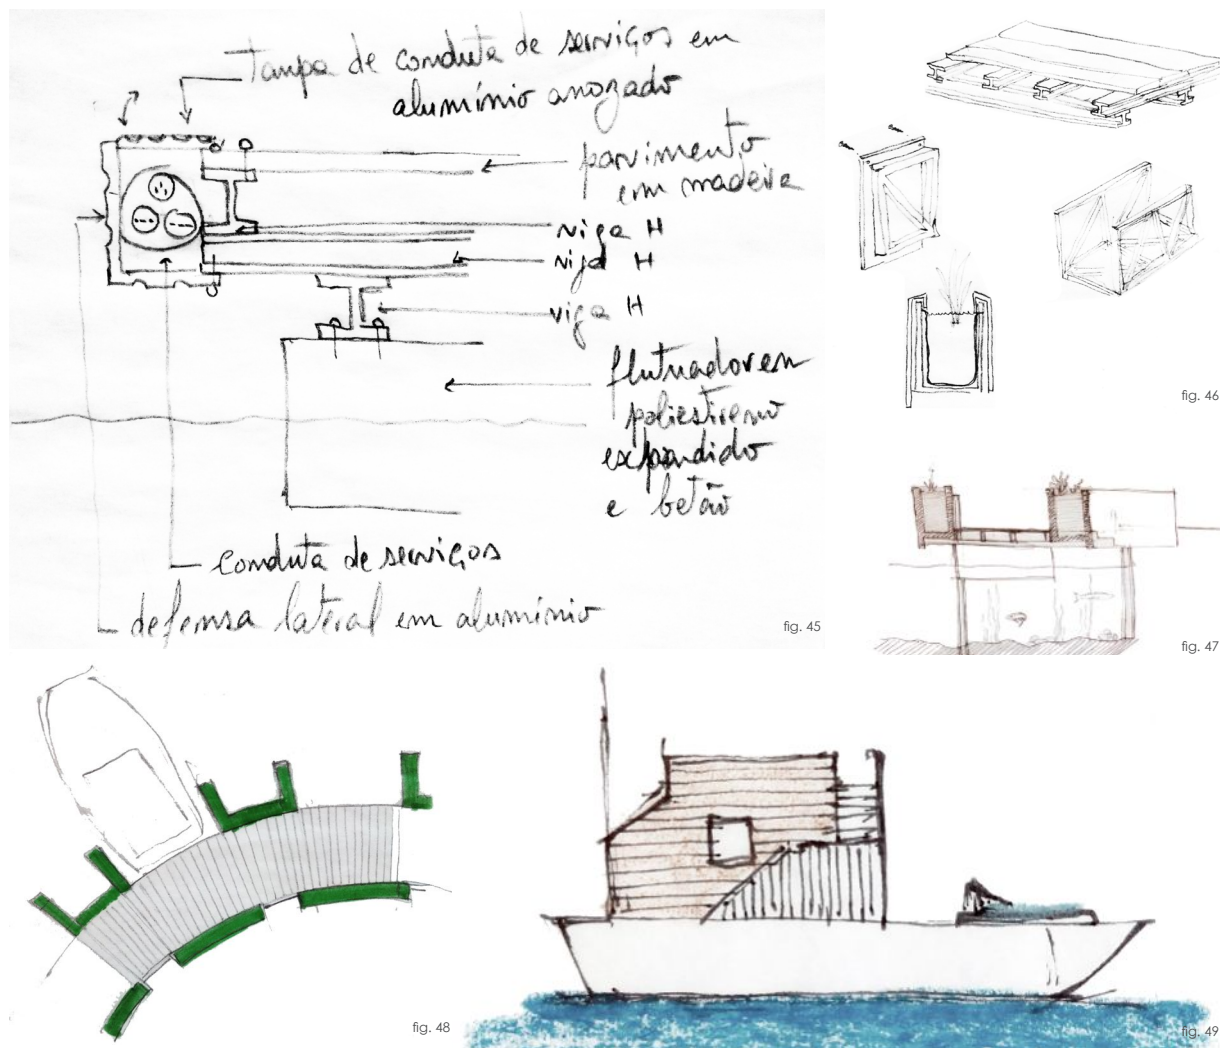 tampa de conduta de serviços em
alumínio anozado
pavimento
em madeira
viga H
viga H
viga H
flutuador em
poliestireno
expandido
e betão
conduta de serviços
defensa lateral em alumínio
fig. 45
fig. 46
fig. 47
fig. 48
fig. 49